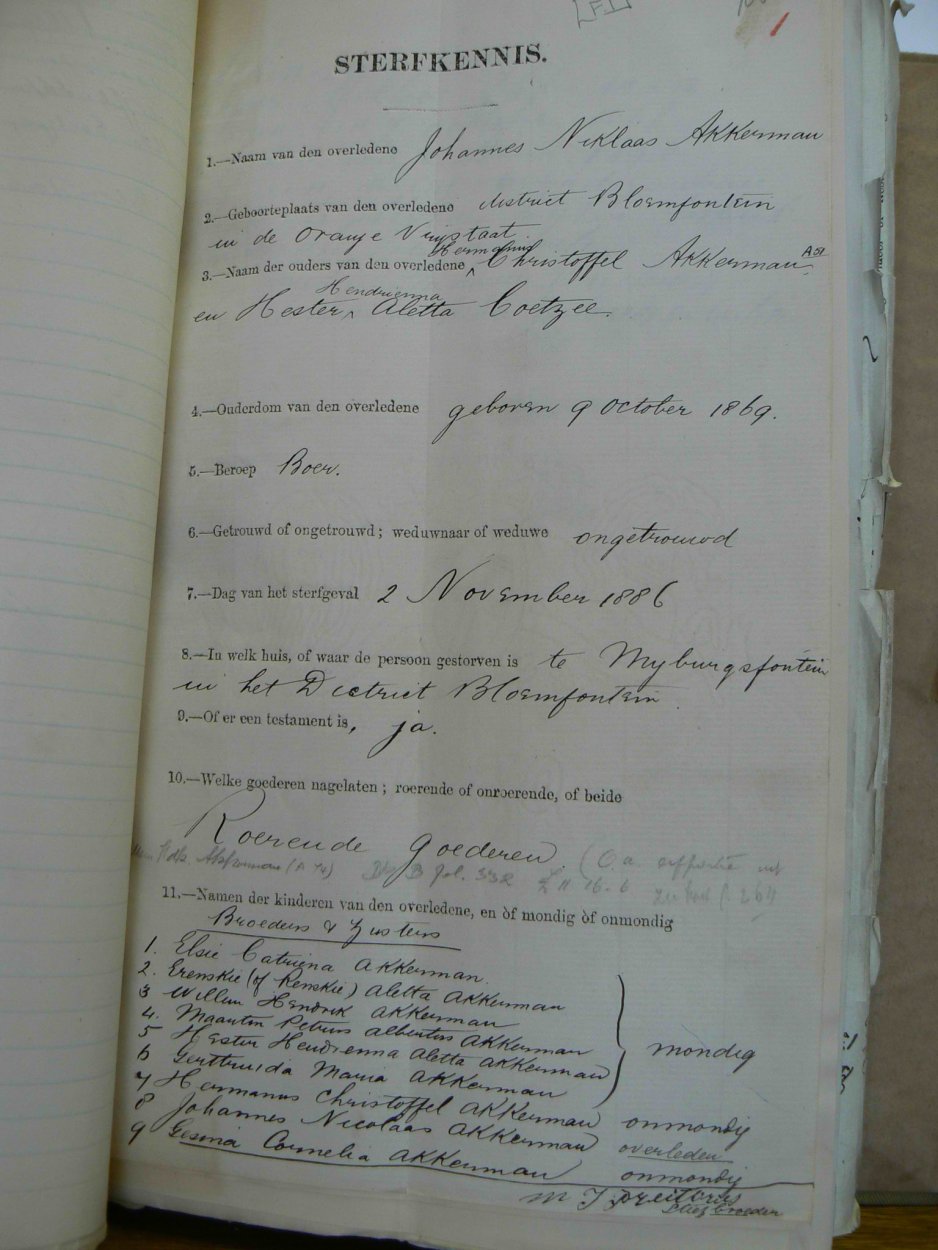 [F1]
1
STERFKENNIS.
1.—Naam van den overledene Johannes Niklaas Akkerman
2.—Geboorteplaats van den overledene district Bloemfontein
in de Oranje Vrijstaat.
Hermanus
3.—Naam der ouders van den overledene, Christoffel Akkerman
Hendrienna
en Hester Aletta Coetzee.
4.—Ouderdom van den overledene geboren 9 October 1869.
5.—Beroep Boer.
6.—Getrouwd of ongetrouwd; weduwnaar of weduwe ongetrouwd
7.—Dag van het sterfgeval 2 November 1886
8.—In welk huis, of waar de persoon gestorven is te Myburgsfontein
in het District Bloemfontein
9.—Of er een testament is, ja.
10.—Welke goederen nagelaten; roerende of onroerende, of beide
Roerende Goederen.
Fol. 332 £ 11. 16. 6
11.—Namen der kinderen van den overledene, en òf mondig òf onmondig
Broeders & Zusters
1. Elsie Catriena Akkerman
2. Erenskie (of Renskie) Aletta Akkerman
3 Willem Hendrik Akkerman
4. Maartin Petrus Albertus Akkerman mondig
5 Hester Hendrienna Aletta Akkerman
6 Gerttruida Maria Akkerman
7 Hermanus Christoffel Akkerman onmondig
8 Johannes Nicolaas Akkerman overleden
9 Gesina Cornelia Akkerman onmondig